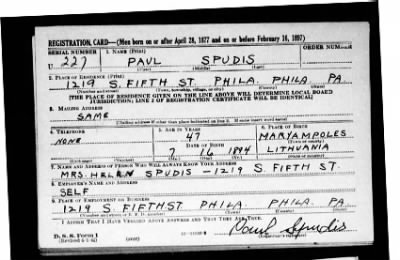 REGISTRATION CARD—(Men born on or after April 28, 1877 and on or before February 16, 1897)
SERIAL NUMBER 1. NAME (Print) ORDER NUMBER
U 227 PAUL SPUDIS
(First) (Middle) (Last)
2. PLACE OF RESIDENCE (Print)
1219 S. FIFTH ST. PHILA. PHILA. PA
(Number and street) (Town, township, village, or city) (County) (State)
[THE PLACE OF RESIDENCE GIVEN ON THE LINE ABOVE WILL DETERMINE LOCAL BOARD
JURISDICTION; LINE 2 OF REGISTRATION CERTIFICATE WILL BE IDENTICAL]
3. MAILING ADDRESS
SAME
[Mailing address if other than place indicated on line 2. If same insert word same]
4. TELEPHONE 5. AGE IN YEARS 6. PLACE OF BIRTH
NONE 47 MARYAMPOLES
DATE OF BIRTH (Town or county)
7 16 1894 LITHUANIA
(Exchange) (Number) (Mo.) (Day) (Yr.) (State or country)
7. NAME AND ADDRESS OF PERSON WHO WILL ALWAYS KNOW YOUR ADDRESS
MRS. HELEN SPUDIS — 1219 S. FIFTH ST.
8. EMPLOYER'S NAME AND ADDRESS
SELF
9. PLACE OF EMPLOYMENT OR BUSINESS
1219 S. FIFTH ST. PHILA. PHILA. PA
(Number and street or R. F. D. number) (Town) (County) (State)
I AFFIRM THAT I HAVE VERIFIED ABOVE ANSWERS AND THAT THEY ARE TRUE.
D. S. S. Form 1
(Revised 4-1-42) (over) Paul Spudis